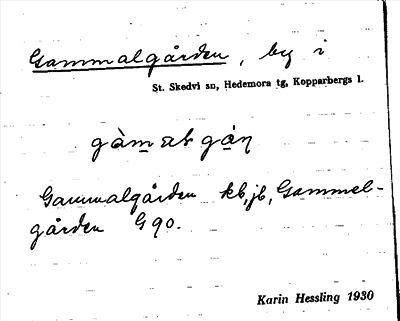 Gammalgården, by i
St. Skedvi sn, Hedemora tg, Kopparbergs l.
Gammalgården kb, jb, Gammel-
gården G 90.
Karin Hessling 1930